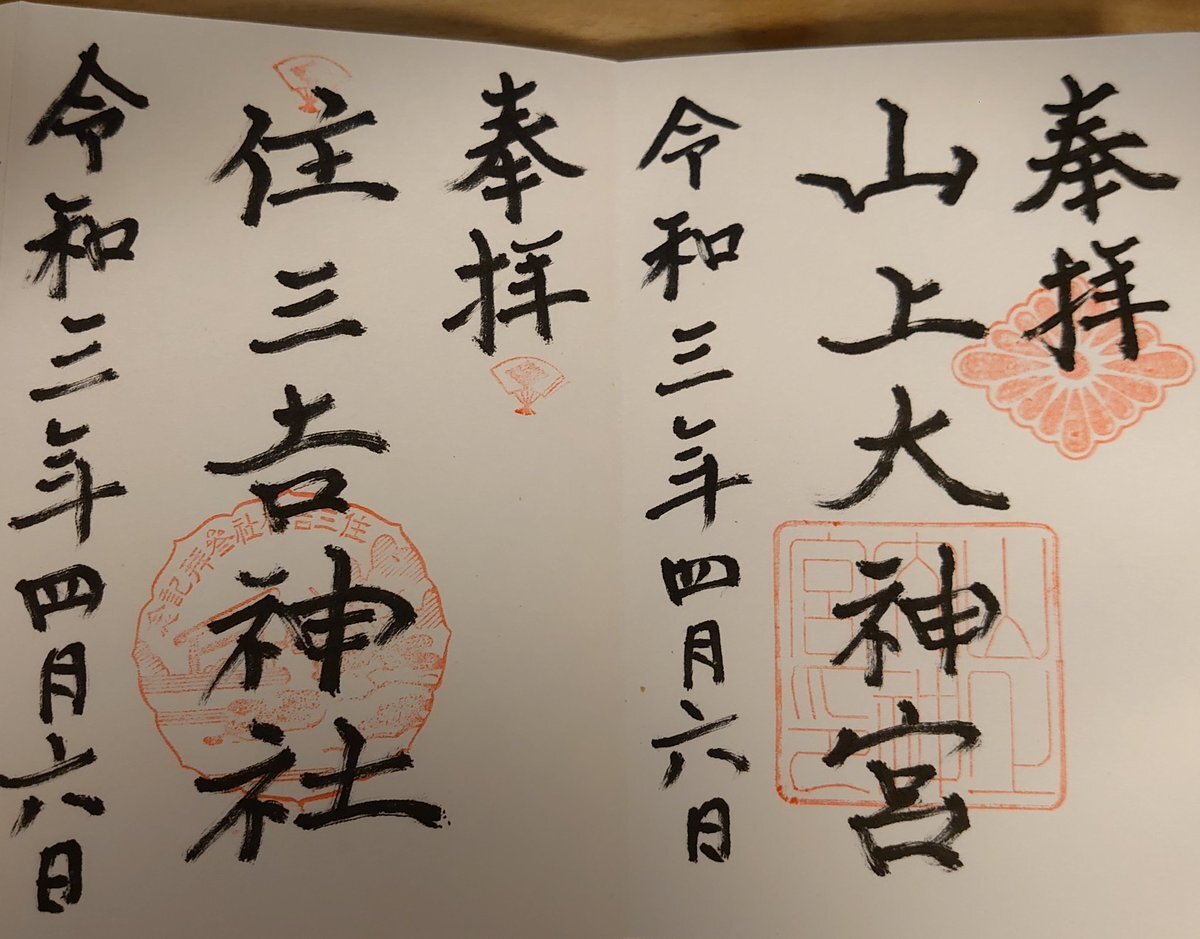 奉拝
山上大神宮
令和三年四月六日
奉拝
住三吉神社
令和三年四月六日
住三吉神社参拝記念